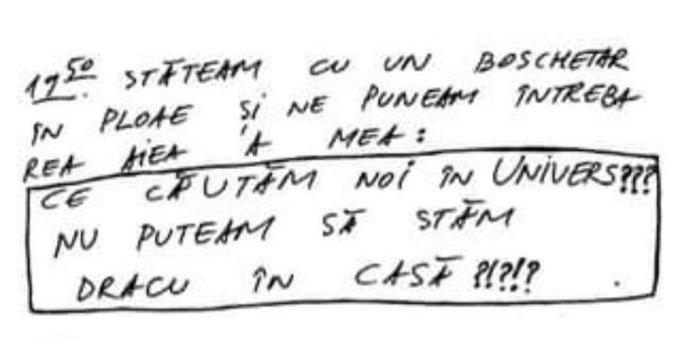 19⁵⁰. STĂTEAM CU UN BOSCHETAR
ÎN PLOAE ȘI NE PUNEAM ÎNTREBA
REA AIEA 'A MEA:
CE CĂUTĂM NOI ÎN UNIVERS???
NU PUTEAM SĂ STĂM
DRACU ÎN CASĂ ?!?!?